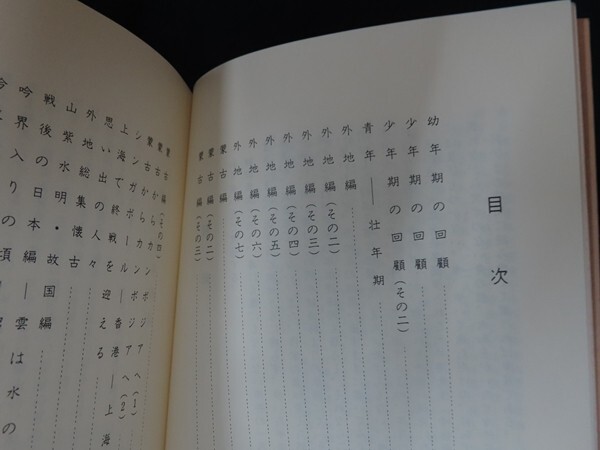 目次
幼年期の回顧
少年期の回顧
少年期の回顧(その二)
青年――壮年期
外地編
外地編(その二)
外地編(その三)
外地編(その四)
外地編(その五)
外地編(その六)
外地編(その七)
蒙古編
蒙古編(その二)
蒙古編(その三)
蒙古編(その四)
蒙古からカンボジアへ(1)
蒙古からカンボジアへ(2)
シンガポール―香港―上海
上海で終戦を迎える
思い出の人々
外地総集懐古
山紫水明・故国編
戦後の日本編―雲は水の
吟界入りの頃